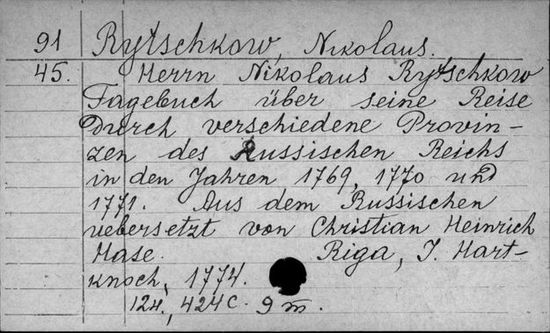 91 Rytschkow, Nikolaus.
45. Herrn Nikolaus Rytschkow
Tagebuch über seine Reise
durch verschiedene Provin-
zen des Russischen Reichs
in den Jahren 1769, 1770 und
1771. Aus dem Russischen
uebersetzt von Christian Heinrich
Hase. Riga, J. Hart-
knoch, 1774.
12н., 424 с. 9 т.